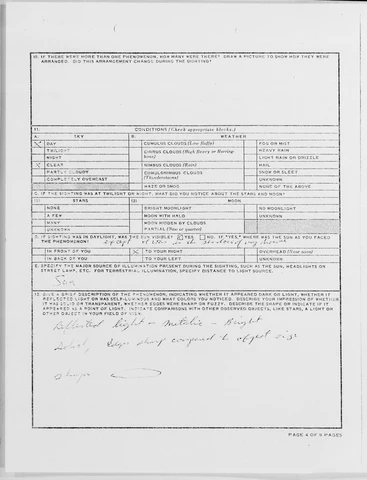 10. IF THERE WERE MORE THAN ONE PHENOMENON, HOW MANY WERE THERE? DRAW A PICTURE TO SHOW HOW THEY WERE
ARRANGED. DID THIS ARRANGEMENT CHANGE DURING THE SIGHTING?
11. CONDITIONS (Check appropriate blocks.)
A. SKY B. WEATHER
DAY CUMULUS CLOUDS (Low fluffy) FOG OR MIST
TWILIGHT CIRRUS CLOUDS (High fleecy or Herring-bone) HEAVY RAIN
NIGHT LIGHT RAIN OR DRIZZLE
X CLEAR NIMBUS CLOUDS (Rain) HAIL
PARTLY CLOUDY CUMULONIMBUS CLOUDS (Thunderstorms) SNOW OR SLEET
COMPLETELY OVERCAST UNKNOWN
HAZE OR SMOG NONE OF THE ABOVE
C. IF THE SIGHTING WAS AT TWILIGHT OR NIGHT, WHAT DID YOU NOTICE ABOUT THE STARS AND MOON?
(1) STARS (2) MOON
NONE BRIGHT MOONLIGHT NO MOONLIGHT
A FEW MOON WITH HALO UNKNOWN
MANY MOON HIDDEN BY CLOUDS
UNKNOWN PARTIAL (New or quarter)
D. IF SIGHTING WAS IN DAYLIGHT, WAS THE SUN VISIBLE? YES NO. IF "YES," WHERE WAS THE SUN AS YOU FACED
THE PHENOMENON?
IN FRONT OF YOU X TO YOUR RIGHT OVERHEAD (Near noon)
IN BACK OF YOU TO YOUR LEFT UNKNOWN
E. SPECIFY THE MAJOR SOURCE OF ILLUMINATION PRESENT DURING THE SIGHTING, SUCH AS THE SUN, HEADLIGHTS OR
STREET LAMP, ETC. FOR TERRESTRIAL ILLUMINATION, SPECIFY DISTANCE TO LIGHT SOURCE.
Sun
12. GIVE A BRIEF DESCRIPTION OF THE PHENOMENON, INDICATING WHETHER IT APPEARED DARK OR LIGHT, WHETHER IT
REFLECTED LIGHT OR WAS SELF-LUMINOUS AND WHAT COLORS YOU NOTICED. DESCRIBE YOUR IMPRESSION OF WHETHER
IT WAS SOLID OR TRANSPARENT, WHETHER EDGES WERE SHARP OR FUZZY. DESCRIBE THE SHAPE OR INDICATE IF IT
APPEARED AS A POINT OF LIGHT. INDICATE COMPARISONS WITH OTHER OBSERVED OBJECTS, LIKE STARS, A LIGHT OR
OTHER OBJECT IN YOUR FIELD OF VIEW.
Reflected light - Metallic - Bright
Edges sharp compared to object size
Shape
PAGE 4 OF 9 PAGES